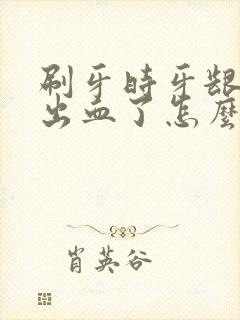 刷牙时牙龈
出血了怎麼
肖英谷